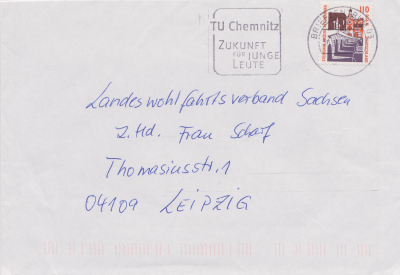 TU Chemnitz
ZUKUNFT
FÜR JUNGE
LEUTE
110
Landeswohlfahrtsverband Sachsen
z. Hd. Frau Scharf
Thomasiusstr. 1
04109 LEIPZIG